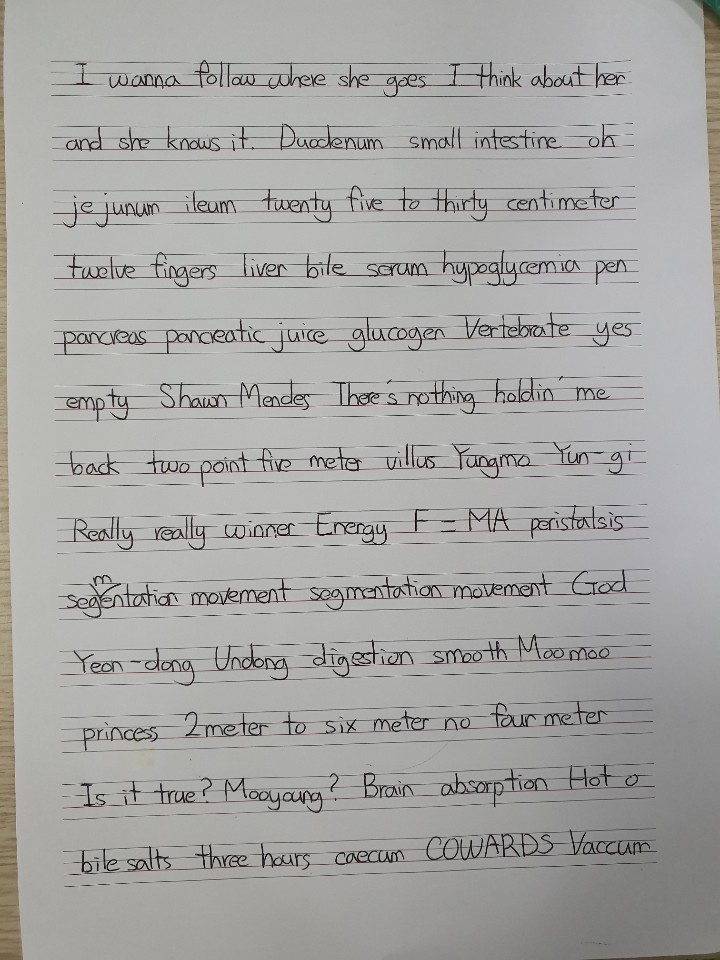 I wanna follow where she goes I think about her
and she knows it. Duodenum small intestine oh
jejunum ileum twenty five to thirty centimeter
twelve fingers liver bile serum hypoglycemia pen
pancreas pancreatic juice glucogen Vertebrate yes
empty Shawn Mendes There's nothing holdin' me
back two point five meter villus Yangmo Yun-gi
Really really winner Energy F = MA peristalsis
segmentation movement segmentation movement God
Yeon-dong Undong digestion smooth Moomoo
princess 2meter to six meter no four meter
Is it true? Mooyoung? Brain absorption Hot o
bile salts three hours caecum COWARDS Vaccum